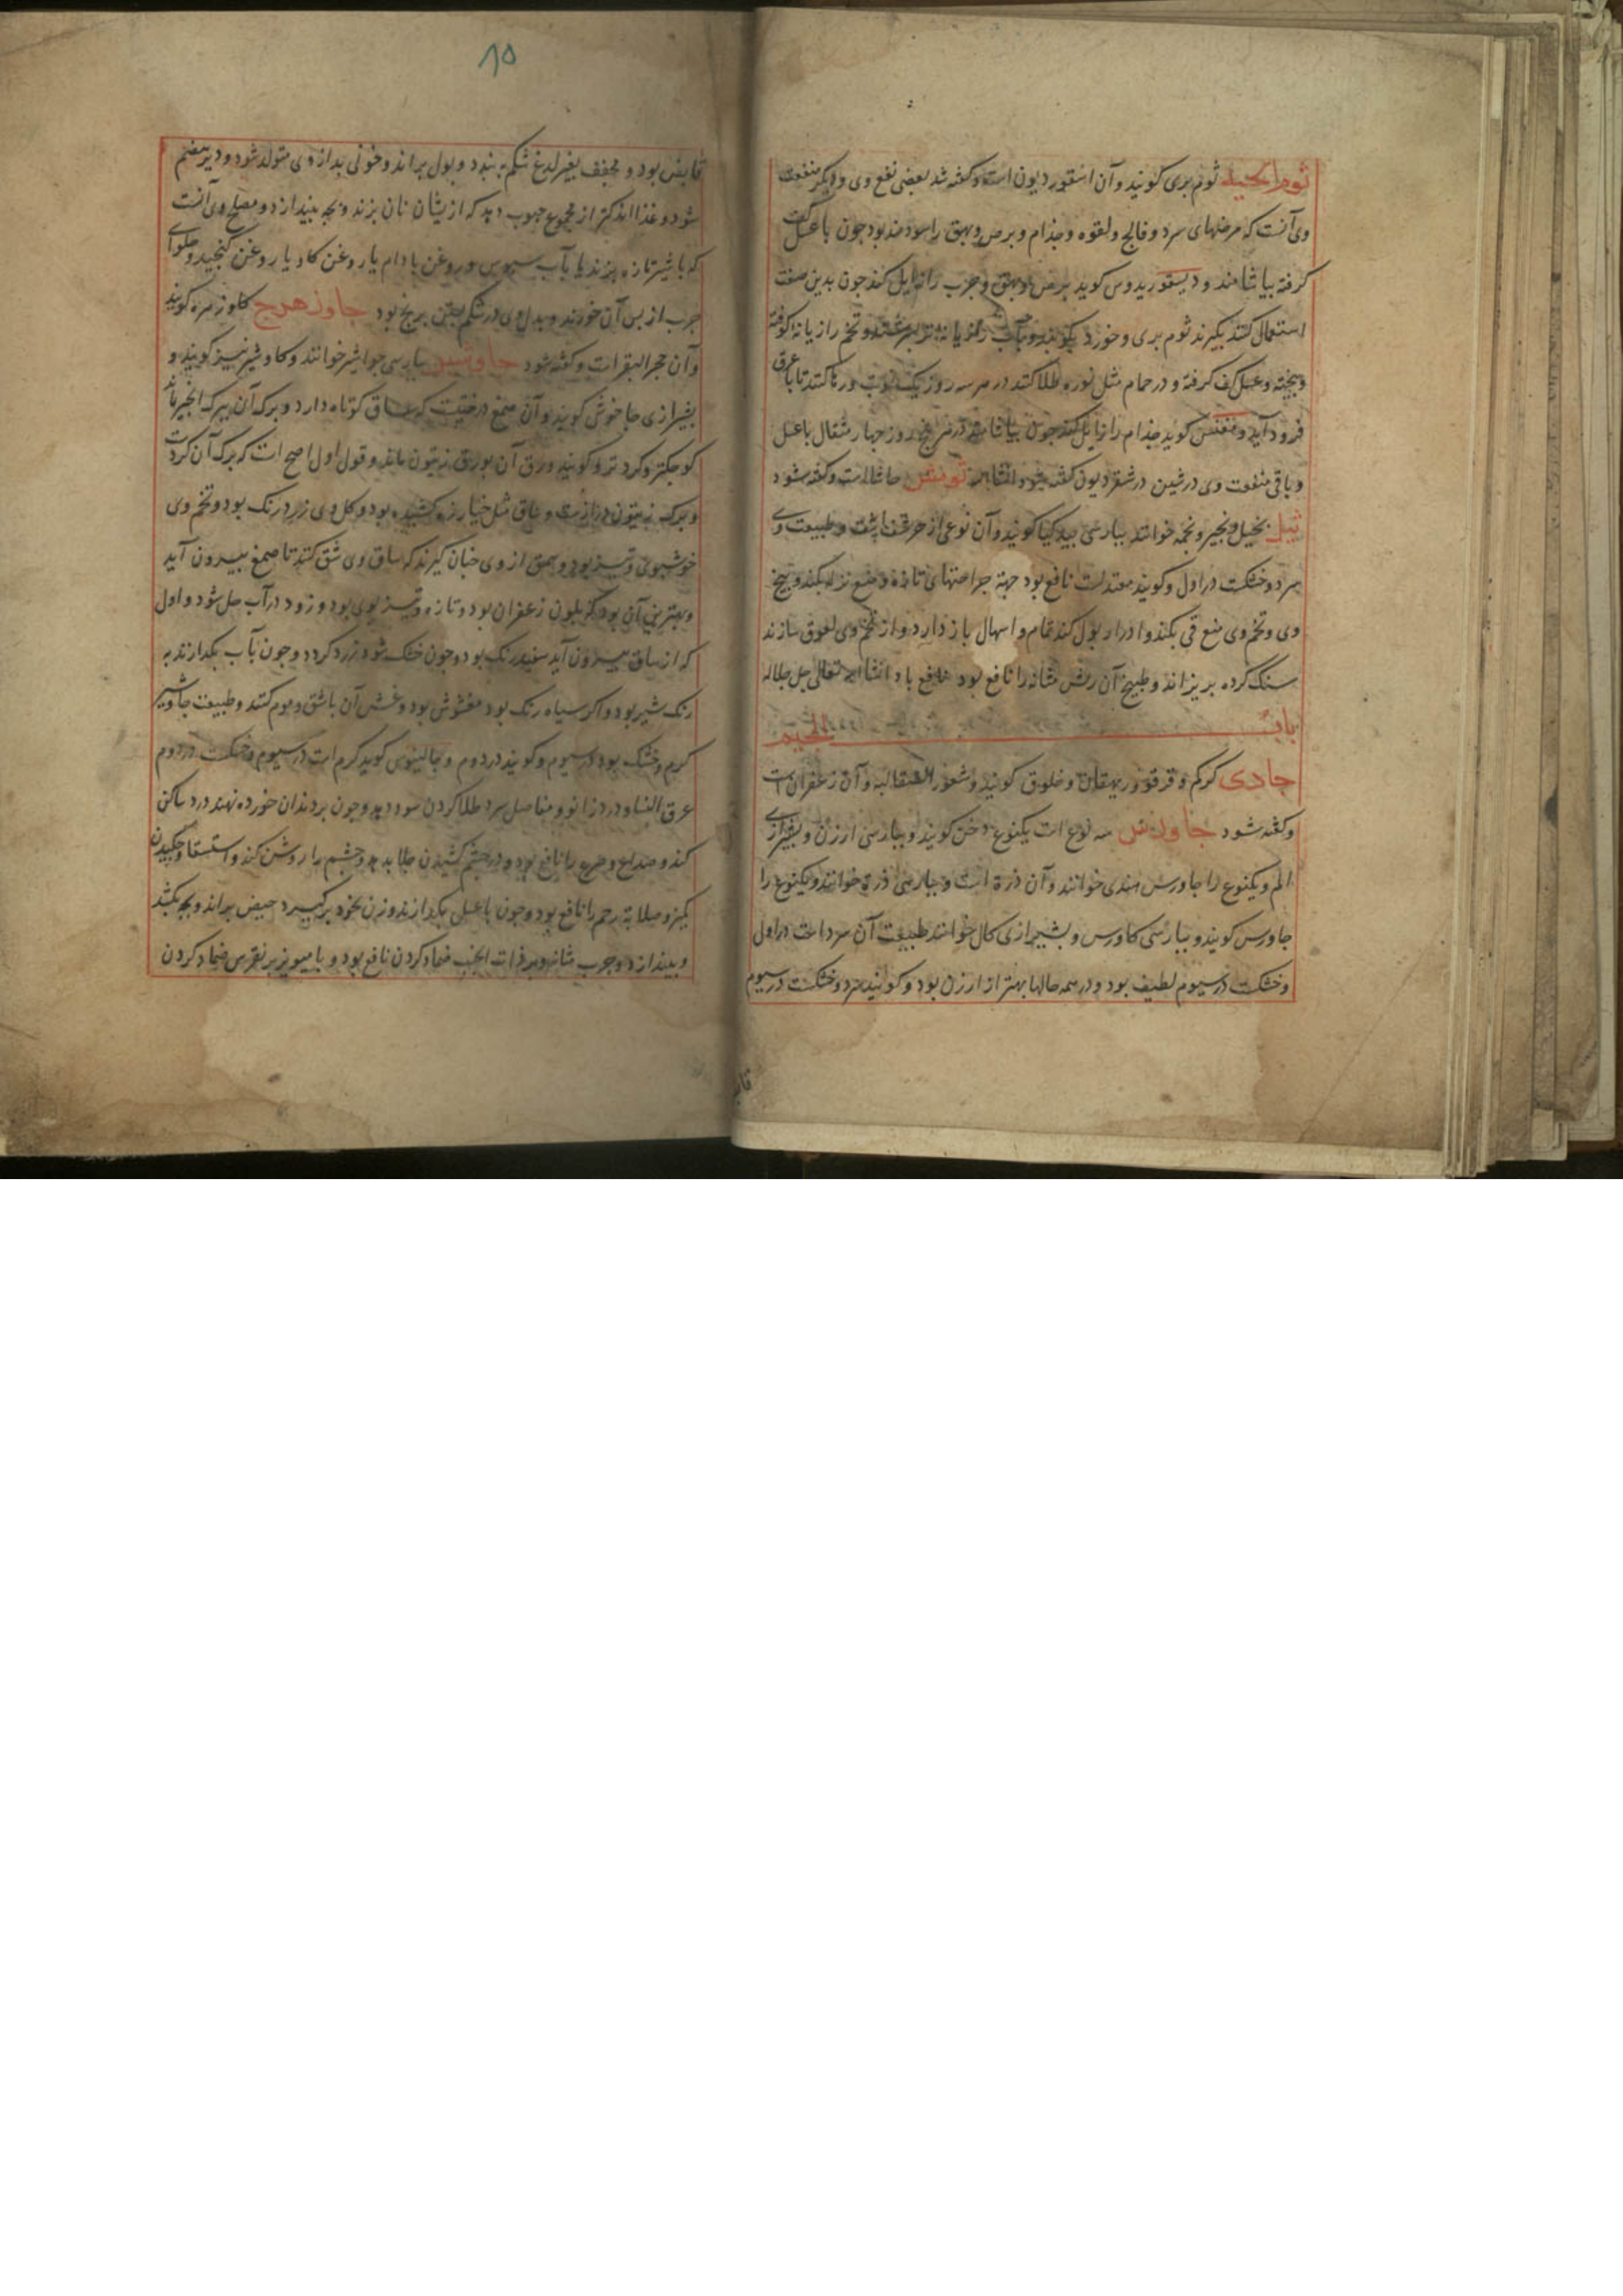 ثوم الحیه ثوم بری کویند و آن اسقوردیون است و کفته شد بعضی نفع وی و دیکر منفعت
وی آنست که مرضهای سرد و فالج و لقوه و جذام و برص و بهق را سودمند بود جون با عسل کف
کرفته بیاشامند و دیسقوریدوس کوید برص و بهق و جرب را زایل کند جون بدین صفت
استعمال کنند بکیرند ثوم بری و خورد بکوبند و بآب رازیانه تر بسرشند و تخم رازیانه کوفته
و بیخته و عسل کف کرفته و در حمام مثل نوره طلا کنند در هر سه روز یک نوبت و رها کنند تا با عرق
فرود آید و کوید جذام را زایل کند جون بیاشامند در هر روز جهار مثقال با عسل
و باقی منفعت وی در شین در شقردیون کفته شود انشا الله ثومس حاشا است و کفته شود
ثیل نخیل و نجیر و نجمه خوانند ببارسی بید کیا کویند و آن نوعی از است و طبیعت وی
سرد و خشکست در اول و کویند معتدلست نافع بود جهة جراحتهای تازه و منع نزله بکند و بیخ
وی و تخم وی منع قی بکند و ادرار بول کند تمام و اسهال باز دارد و از تخم وی لعوق سازند
سنک کرده بریزاند و طبیخ آن ریش مثانه را نافع بود نافع باد انشا الله تعالی جل جلاله
باب الجیم
جادی کرکم و قرقو و ریهقان و خلوق کویند و شعور الصقالبه و آن زعفران است
و کفته شود جاورس سه نوع است یکنوع دخن کویند و ببارسی ارزن و بشیرازی
الم و یکنوع را جاورس هندی خوانند و آن ذرة است و ببارسی ذرة خوانند و یکنوع را
جاورس کویند و ببارسی کاورس و بشیرازی کال خوانند طبیعت آن سرد است در اول
و خشکست در سیوم لطیف بود و در همه حالها بهتر از ارزن بود و کویند سرد و خشکست در سیوم
قابض
۸۵
قابض بود و مجفف بغیر لدغ شکم به بندد و بول براند و خونی بد از وی متولد شود و دیر هضم
شود و غذا اندکتر از مجموع حبوب دهد که از یشان نان بزند و بجه بیندازد و مصلح وی آنست
که با شیر تازه بزند یا بآب سبوس و روغن بادام یا روغن کاو یا روغن کنجید و حلوای
جرب از بس آن خورند و بدل وی در شکم بستن برنج بود جاوزهرج کاوزهره کویند
و آن حجر البقر است و کفته شود جاوشیر ببارسی جواشیر خوانند و کاوشیر نیز کویند و
بشیرازی جاخوش کویند و آن صمغ درختیست که ساق کوتاه دارد و برک آن ببرک انجیر ماند
کوجکتر و کرد تر و کویند ورق آن بورق زیتون ماند و قول اول اصح است که برک آن کردست
و برک زیتون درازست و ساق مثل خیار زه کشیده بود و کل وی زرد رنک بود و تخم وی
خوشبوی و تیز بود و صمغ از وی جنان کیرند که ساق وی شق کنند تا صمغ بیرون آید
و بهترین آن بود که بلون زعفران بود و تازه و تیز بوی بود و زود در آب حل شود و اول
که از ساق بیرون آید سفید رنک بود و جون خشک شود زرد کردد و جون بآب بکدازند به
رنک شیر بود و اکر سیاه رنک بود مغشوش بود و غش آن باشق و موم کنند و طبیعت جاوشیر
کرم و خشک بود در سیوم و کویند در دوم و جالینوس کوید کرم است در سیوم و خشکست در دوم
عرق النسا و درد زانو و مفاصل سرد طلا کردن سود دهد و جون بر دندان خورده نهند درد ساکن
کند و صداع و صرع را نافع بود و در جشم کشیدن جلا بدهد و جشم را روشن کند و استسقا و جکیدن
کمیز و صلابة رحم را نافع بود و جون با عسل بکدازند و زن بخود برکیرد حیض براند و بجه بکشد
و بیندازد و جرب مثانه و بر ذات الجنب ضماد کردن نافع بود و با میویز بر نقرس ضماد کردن